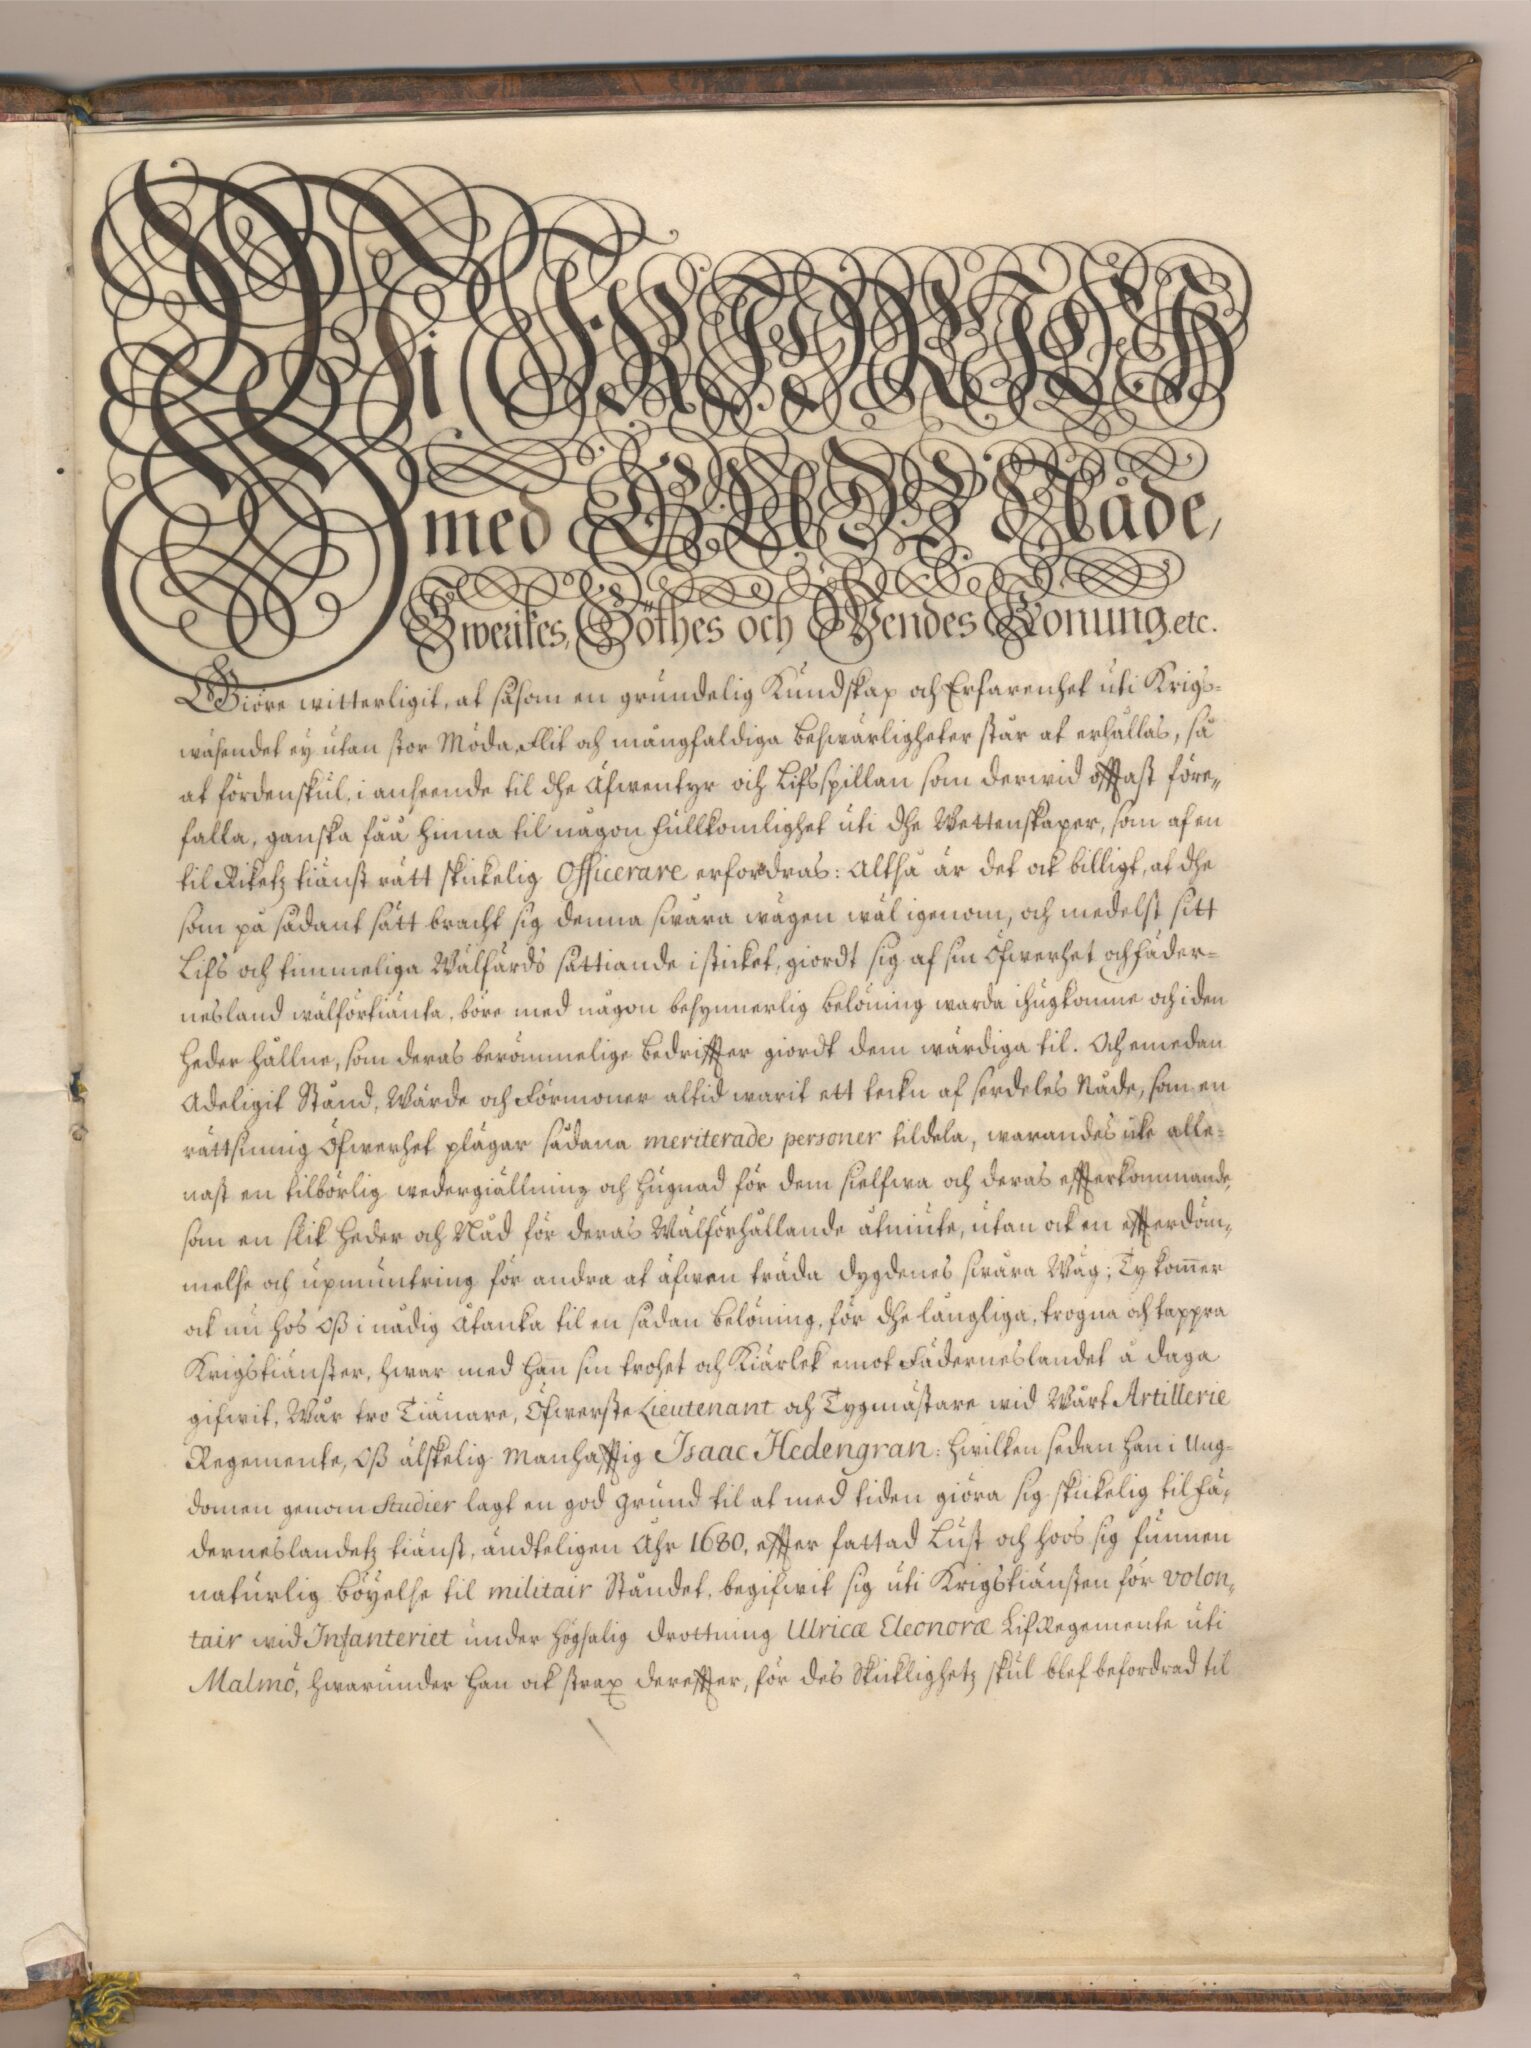 Wi FRIDRICH
med GUDS Nåde,
Swerikes, Göthes och Wendes Konung. etc.
Giöre witterligit, at såsom en grundelig Kundskap och Erfarenhet uti Krigs=
wäsendet ey utan stor Möda, Flit och mångfaldiga beswärligheter står at erhållas, så
at fördenskul, i anseende til dhe Äfwentyr och Lifsspillan som derwid offtast före„
falla, ganska fåå hinna til någon fullkomlighet uti dhe Wettenskaper, som af en
til Riketz tiänst rätt skickelig Officerare erfordras: Altså är det ock billigt, at dhe
som på sådant sätt bracht sig denna swåra wägen wäl igenom, och medelst sitt
Lifs och timmeliga Wälfärds sättiande i sticket, giordt sig af sin Öfwerhet och fäder=
nesland wälförtiänta, böre med någon besynnerlig belöning warda ihugkomne och i den
heder hållne, som deras berömmelige bedriffter giordt dem wärdiga til. Och emedan
Adeligit Stånd, Wärde och Förmoner altid warit ett teckn af serdeles Nåde, som en
rättsinnig Öfwerhet plägar sådana meriterade personer tildela, warandes icke alle=
nast en tilbörlig wedergiällning och hugnad för dem sielfwa och deras effterkommande,
som en slik heder och Nåd för deras Wälförhållande åtniute, utan ock en effterdöm„
melse och upmuntring för andra at äfwen träda dygdenes swåra Wäg; Ty kom̅er
ock nu hos Oß i nådig åtanka til en sådan belöning, för dhe långliga, trogna och tappra
Krigstiänster, hwar med han sin trohet och Kiärlek emot Fäderneslandet å daga
gifwit, Wår tro Tiänare, Öfwerste Lieutenant och Tygmästare wid Wårt Artillerie
Regemente, Oß älskelig Manhafftig Isaac Hedengran: hwilken sedan han i Ung=
domen genom Studier lagt en god grund til at med tiden giöra sig skickelig til Fä„
derneslandetz tiänst, ändteligen Åhr 1680, effter fattad Lust och hoos sig funnen
naturlig böyelse til militair Ståndet, begifwit sig uti Krigstiänsten för volon„
tair wid Infanteriet under högsalig drottning Ulricæ Eleonoræ Lif Regemente uti
Malmö, hwarunder han ock strax dereffter, för des Skicklighetz skul blef befordrad til